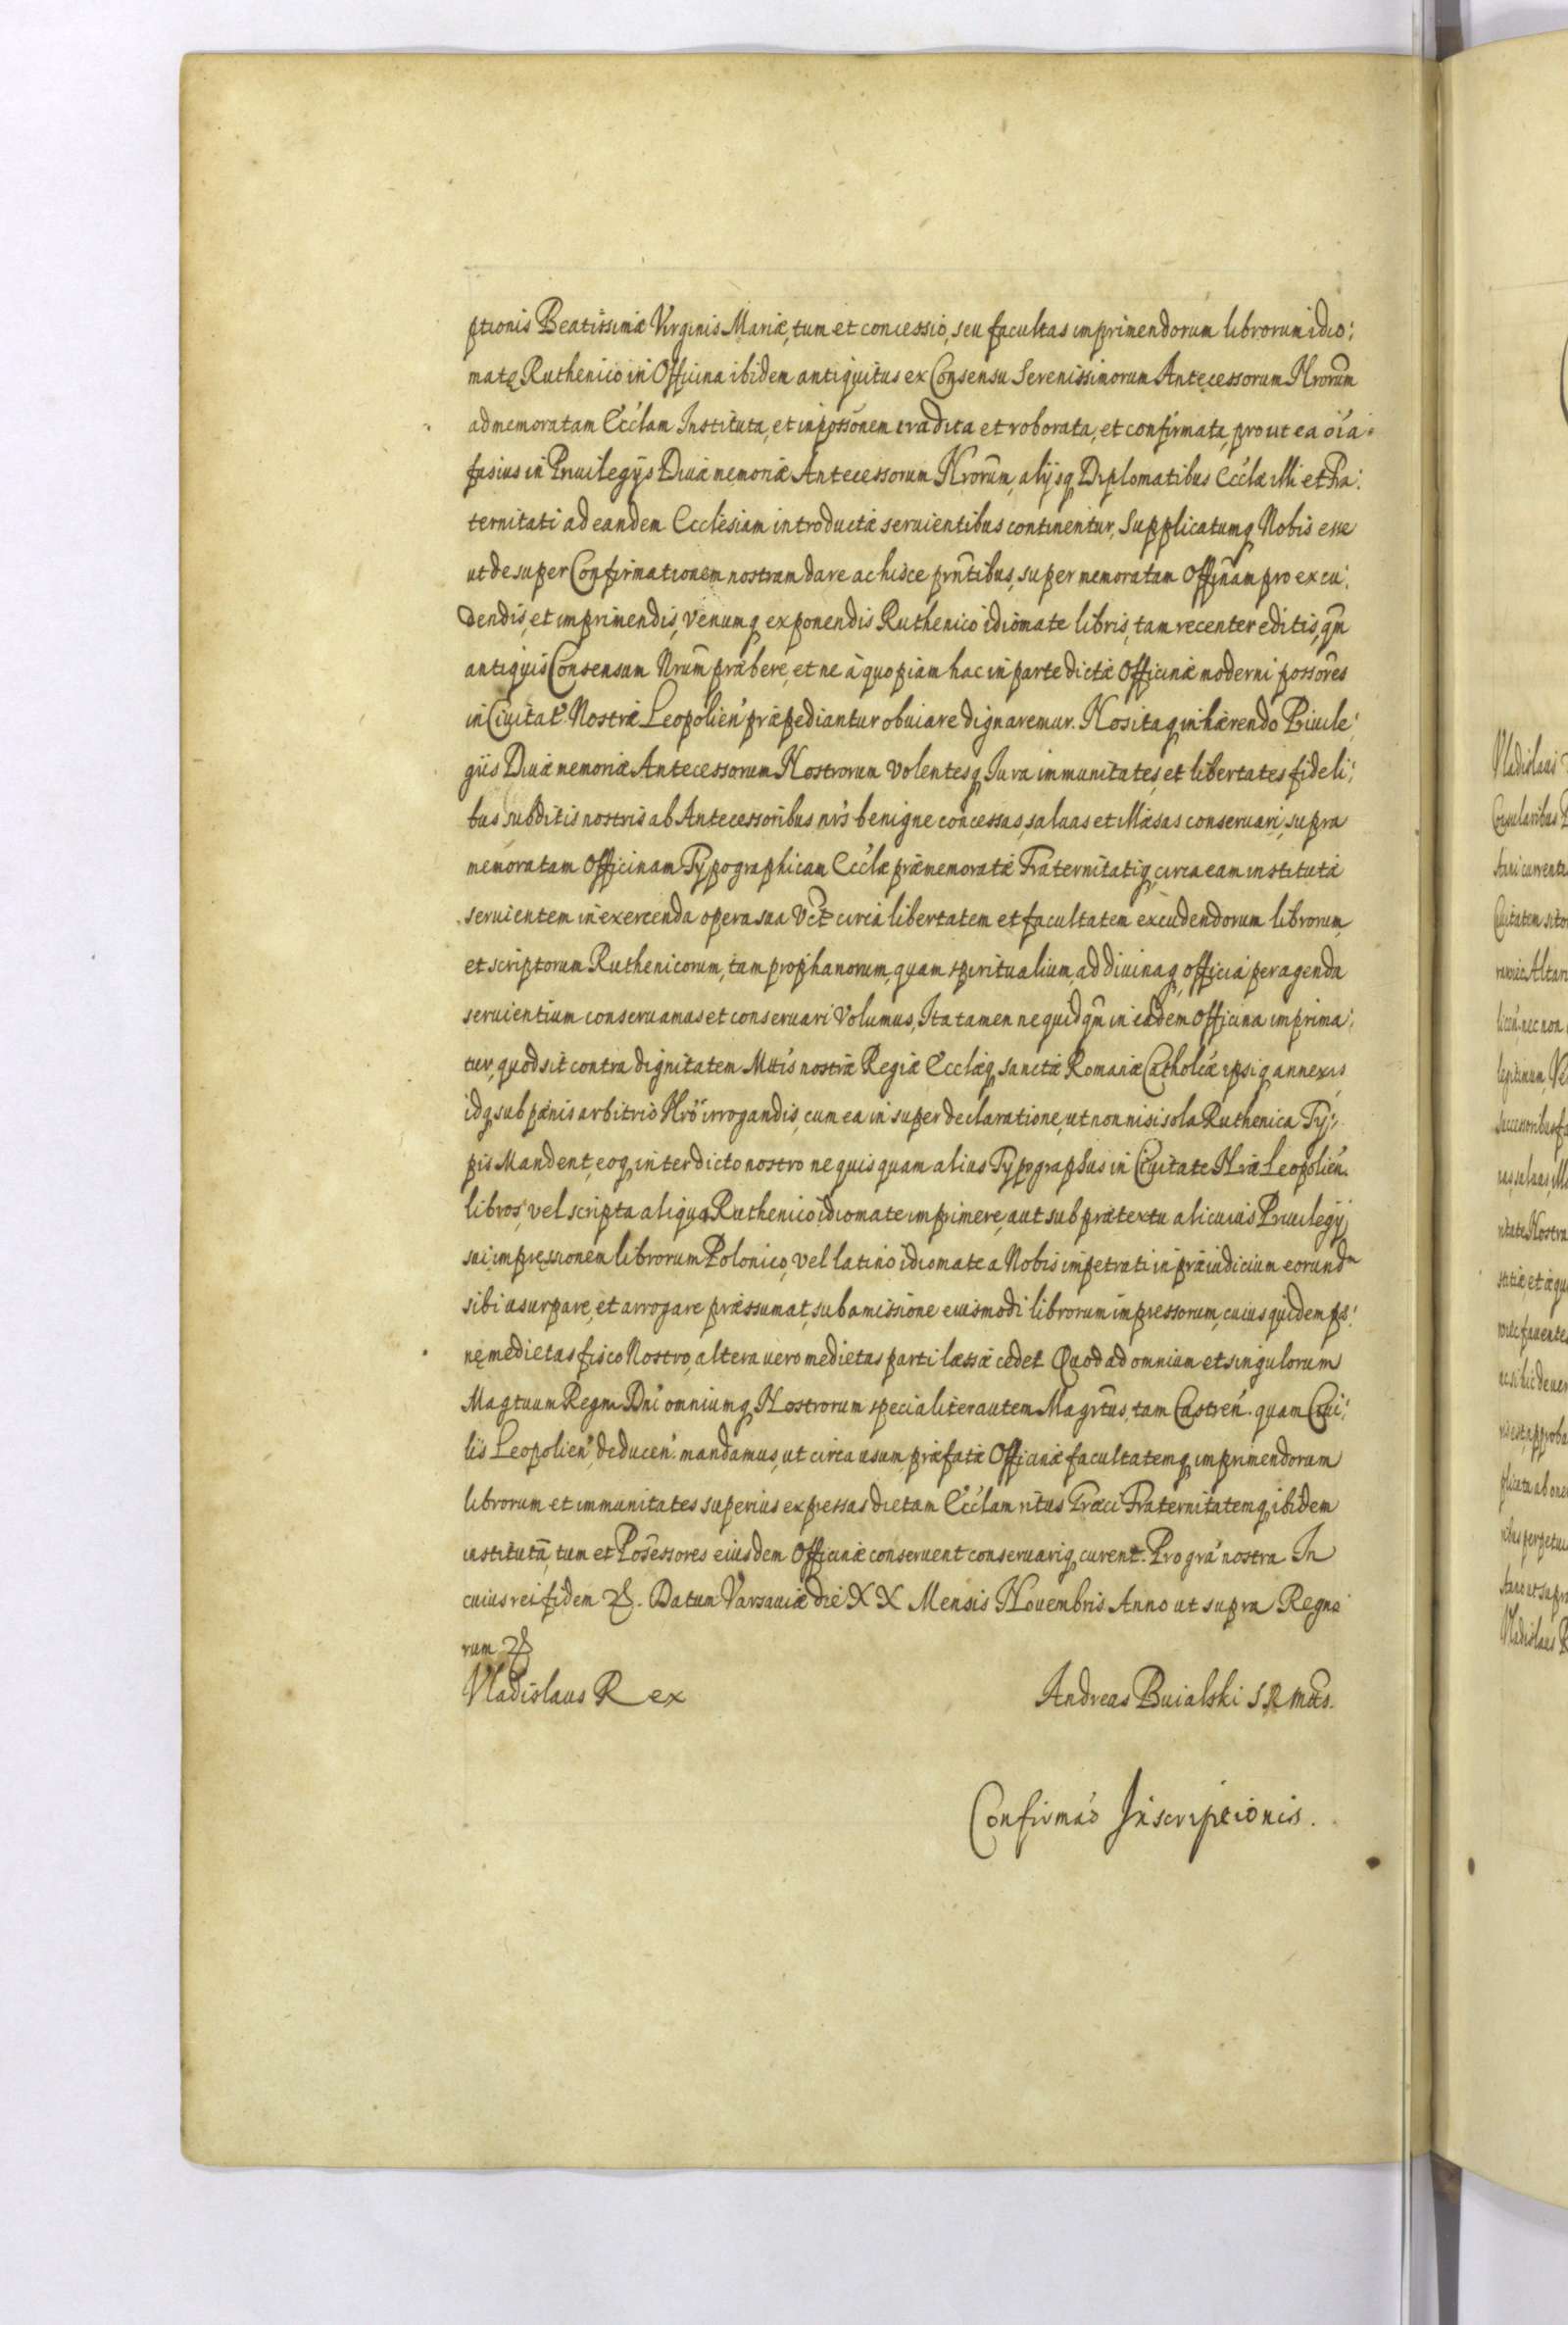 ptionis Beatissimæ Virginis Mariæ, tum et concessio, seu facultas imprimendorum librorum idio:
mate Ruthenico in Officina ibidem antiquitus ex Consensu Serenissimorum Antecessorum Nrorum
ad memoratam Ecc'lam Instituta, et in possōnem tradita et roborata, et confirmata, prout ea oı̃a
fusius in Priuilegijs Diuæ memoriæ Antecessorum Nrorum, alijsq Diplomatibus Ecc'læ illi et Fra:
ternitati ad eandem Ecclesiam introductæ seruientibus continentur, Supplicatumq Nobis esse
ut desuper Confirmationem nostram dare ac hisce prñtibus, super memoratam Officinam pro excu:
dendis, et imprimendis, venumq exponendis Ruthenico idiomate libris, tam recenter editis, qm̃
antiquis Consensum Nrum̃ præbere, et ne à quopiam hac in parte dictæ Officinæ moderni possōres
in Ciuitat' Nostræ Leopolien' præpediantur obuiare dignaremur. Nos itaq inhærendo Priuile:
giis Diuæ memoriæ Antecessorum Nostrorum volentesq Iura immunitates, et libertates fideli:
bus subditis nostris ab Antecessoribus nr̃s benigne concessas, saluas et illæsas conseruari, supra
memoratam Officinam Typographicam Ecc'læ præmemoratæ Fraternitatiq circa eam institutæ
seruientem in exercenda opera sua vc̃t circa libertatem et facultatem excudendorum librorum,
et scriptorum Ruthenicorum, tam prophanorum, quam spiritualium, ad diuinaq officia peragenda
seruientium conseruamus et conseruari Volumus, Ita tamen ne quidqm̃ in eadem Officina imprima:
tur, quod sit contra dignitatem Mttis nostræ Regiæ Ecclæq sanctæ Romanæ Catholcæ ipsiq annexis
idq sub pænis arbitrio Nrõ irrogandis, cum ea insuper declaratione, ut non nisi sola Ruthenica Ty:
pis Mandent, eoq interdicto nostro ne quisquam alius Typographus in Ciuitate Nræ Leopolien.
libros, vel scripta aliqua Ruthenico idiomate imprimere, aut sub prætextu alicuius Priuilegij
sui impressionem librorum Polonico, vel latino idiomate a Nobis impetrati in præiudicium eorundm
sibi usurpare, et arrogare præssumat, sub amissione eiusmodi librorum impressorum, cuius quidem pæ:
nę medietas fisco Nostro, altera uero medietas parti læssæ cedet. Quod ad omnium et singulorum
Magtuum Regni Dni' omniumq Nostrorum specialiter autem Magr̃tus, tam Castren'. quam Ciui:
lis Leopolien', deducen'. mandamus, ut circa usum præfatæ Officinæ facultatemq imprimendorum
librorum et immunitates superius expressas dictam Ecc'lam ritus Græci Fraternitatemq ibidem
institutã, tum et Possessores eiusdem Officinæ conseruent conseruariq curent. Pro grã nostra. In
cuius rei fidem &. Datum Varsauiæ die XX Mensis Nouembris Anno ut supra Regno
rum &
Vladislaus Rex Andreas Buialski S R Mtis.
Confirmao' Inscriptionis.